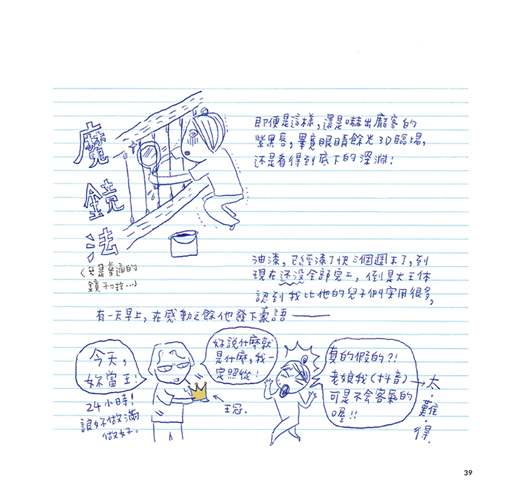 魔鏡法
(只是普通的
鏡子啦…)
即便是這樣,還是嚇出廳客的
紫黑唇,畢竟眼睛餘光3D臨場,
还是看得到底下的深淵!
油漆,已經漆了快三個週末了,到
現在还没全部完工,倒是大王体
認到我比他的兒子們實用很多,
有一天早上,在感動之餘他發下豪語——
今天,
妳當王!
24小時!
讓妳做滿
做好.
妳說什麼就
是什麼,我一
定照從!
王冠.
真的假的?!
老娘我(抖音)
可是不會客氣的
喔!!
太·難·得·
39